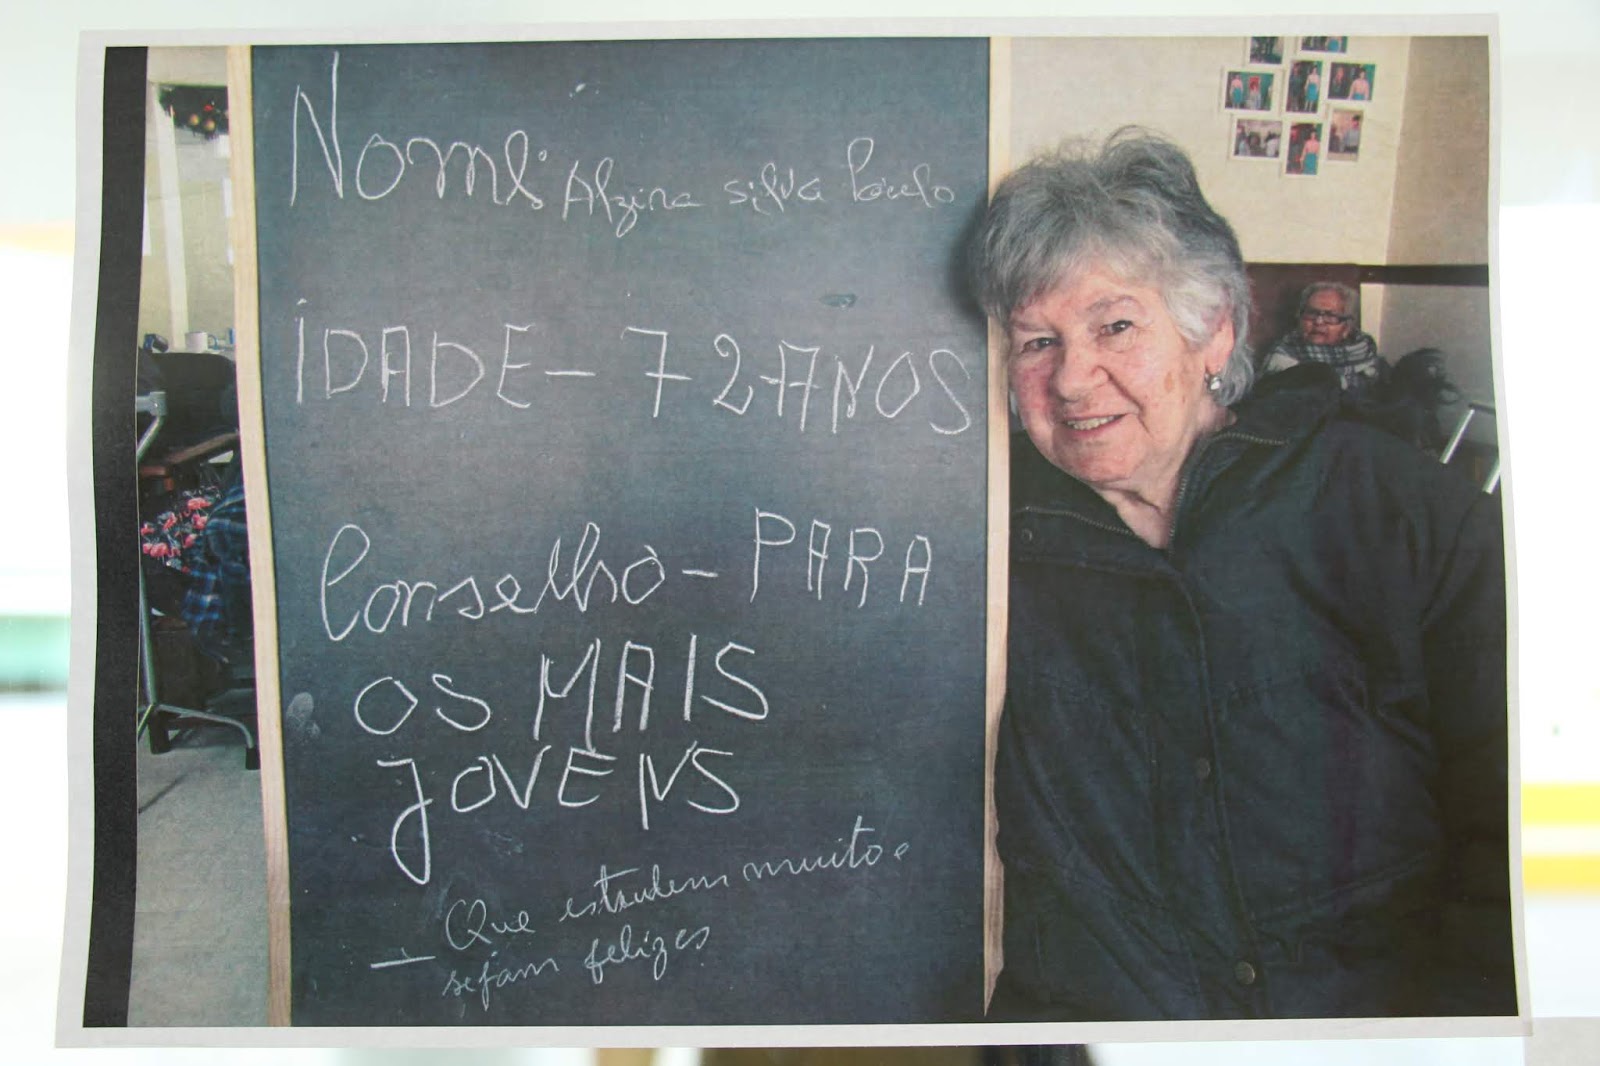 Nome: Alzira Silva Paulo
IDADE - 72 ANOS
Conselho - PARA
OS MAIS
JOVENS
- Que estudem muito e
sejam felizes